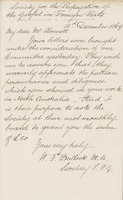 Society for the Propagation of
the Gospel in Foreign Parts
December 1864
My dear Mr Howitt
Your letters were brought
under the consideration of our
Committee yesterday. They wish
me to assure you that they
warmly appreciate the patience
perseverance and diligence
which you showed in your work
in South Australia, And it
is their purpose to ask the
Society at their next monthly
board to grant you the sum
of £20
Yours very truly
W. T. Bullock M.A.
Secretary S.P.G.